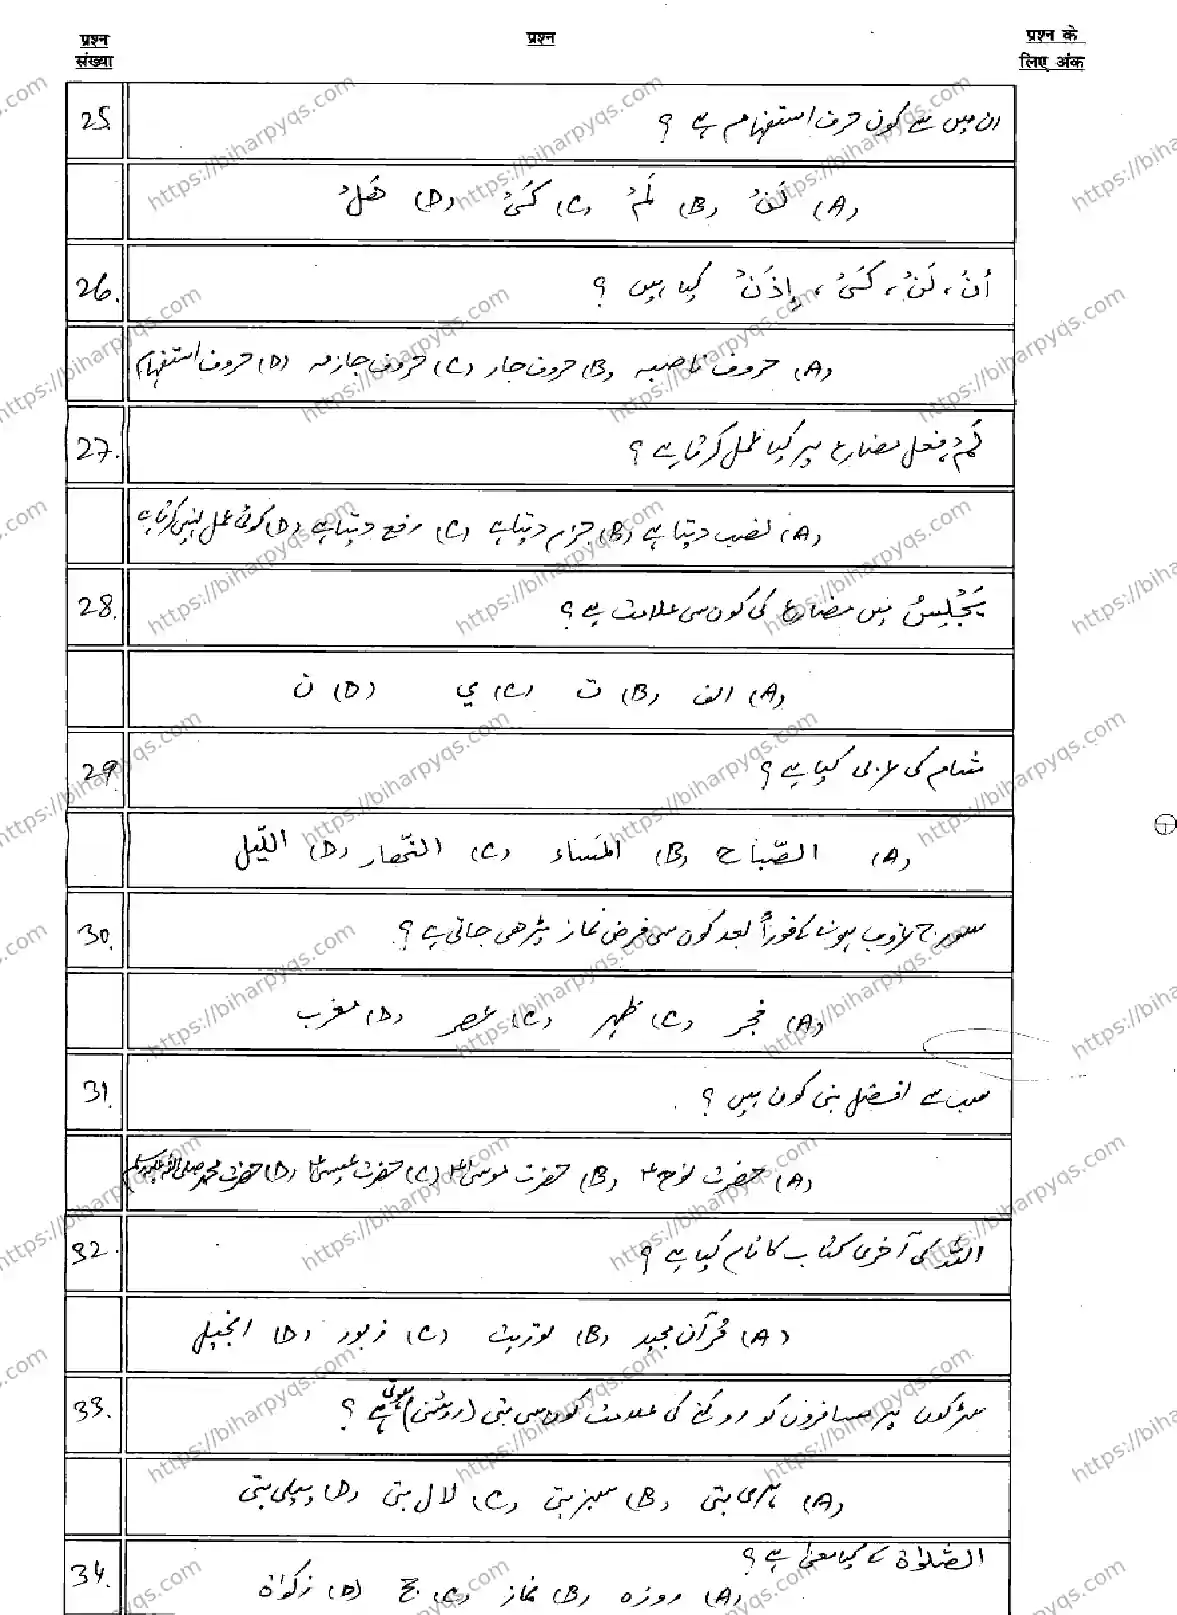 प्रश्न संख्या
प्रश्न
प्रश्न के लिए अंक
25. ان میں سے کون حرف استفہام ہے ؟
(A) لَنْ (B) لَمْ (C) كَيْ (D) هَلْ
26. اَنْ ، لَنْ ، كَيْ ، إِذَنْ کیا ہیں ؟
(A) حروف ناصبہ (B) حروف جار (C) حروف جازمہ (D) حروف استفہام
27. لَمْ ، فعل مضارع پر کیا عمل کرتا ہے ؟
(A) نصب دیتا ہے (B) جزم دیتا ہے (C) رفع دیتا ہے (D) کوئی عمل نہیں کرتا ہے
28. يَجْلِسُ میں مضارع کی کون سی علامت ہے ؟
(A) الف (B) ت (C) ي (D) ن
29. شام کی عربی کیا ہے ؟
(A) الصّباح (B) المَساء (C) النّهار (D) اللّیل
30. سورج غروب ہونے کا فوراً بعد کون سی فرض نماز پڑھی جاتی ہے ؟
(A) فجر (C) ظہر (C) عصر (D) مغرب
31. سب سے افضل نبی کون ہیں ؟
(A) حضرت نوحؑ (B) حضرت موسیٰؑ (C) حضرت عیسیٰؑ (D) حضرت محمد صلی اللہ علیہ وسلم
32. اللہ کی آخری کتاب کا نام کیا ہے ؟
(A) قرآن مجید (B) توریت (C) زبور (D) انجیل
33. سڑکوں پر مسافروں کو روکنے کی علامت کون سی بتی (روشنی) ہوتی ہے ؟
(A) ہری بتی (B) سبز بتی (C) لال بتی (D) پیلی بتی
34. الصّلوٰة کے کیا معنی ہے ؟
(A) روزہ (B) نماز (C) حج (D) زکوٰة
https://biharpyqs.com